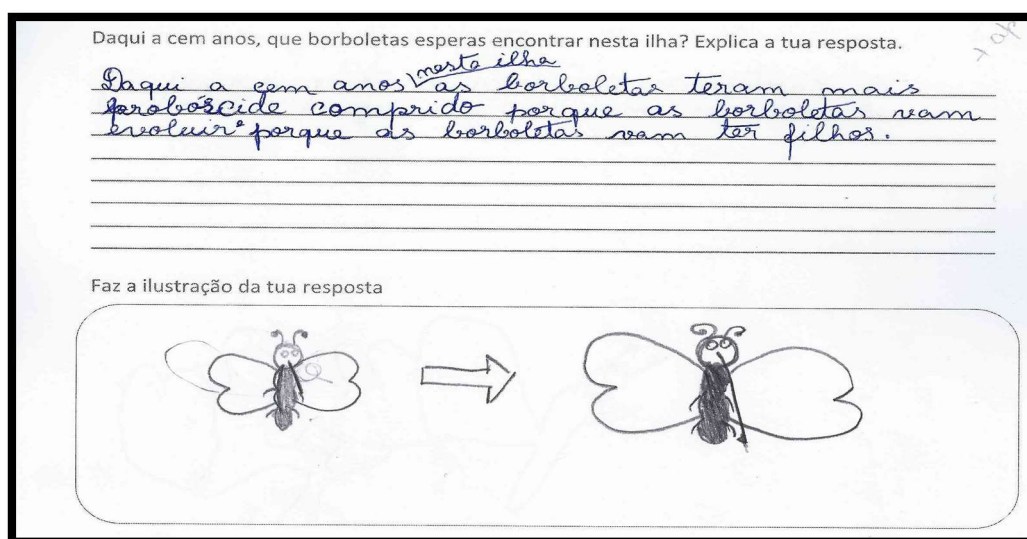 Daqui a cem anos, que borboletas esperas encontrar nesta ilha? Explica a tua resposta.
nesta ilha
Daqui a cem anos as borboletas teram mais
proboscide comprido porque as borboletas vam
evoluir e porque as borboletas vam ter filhos.
Faz a ilustração da tua resposta